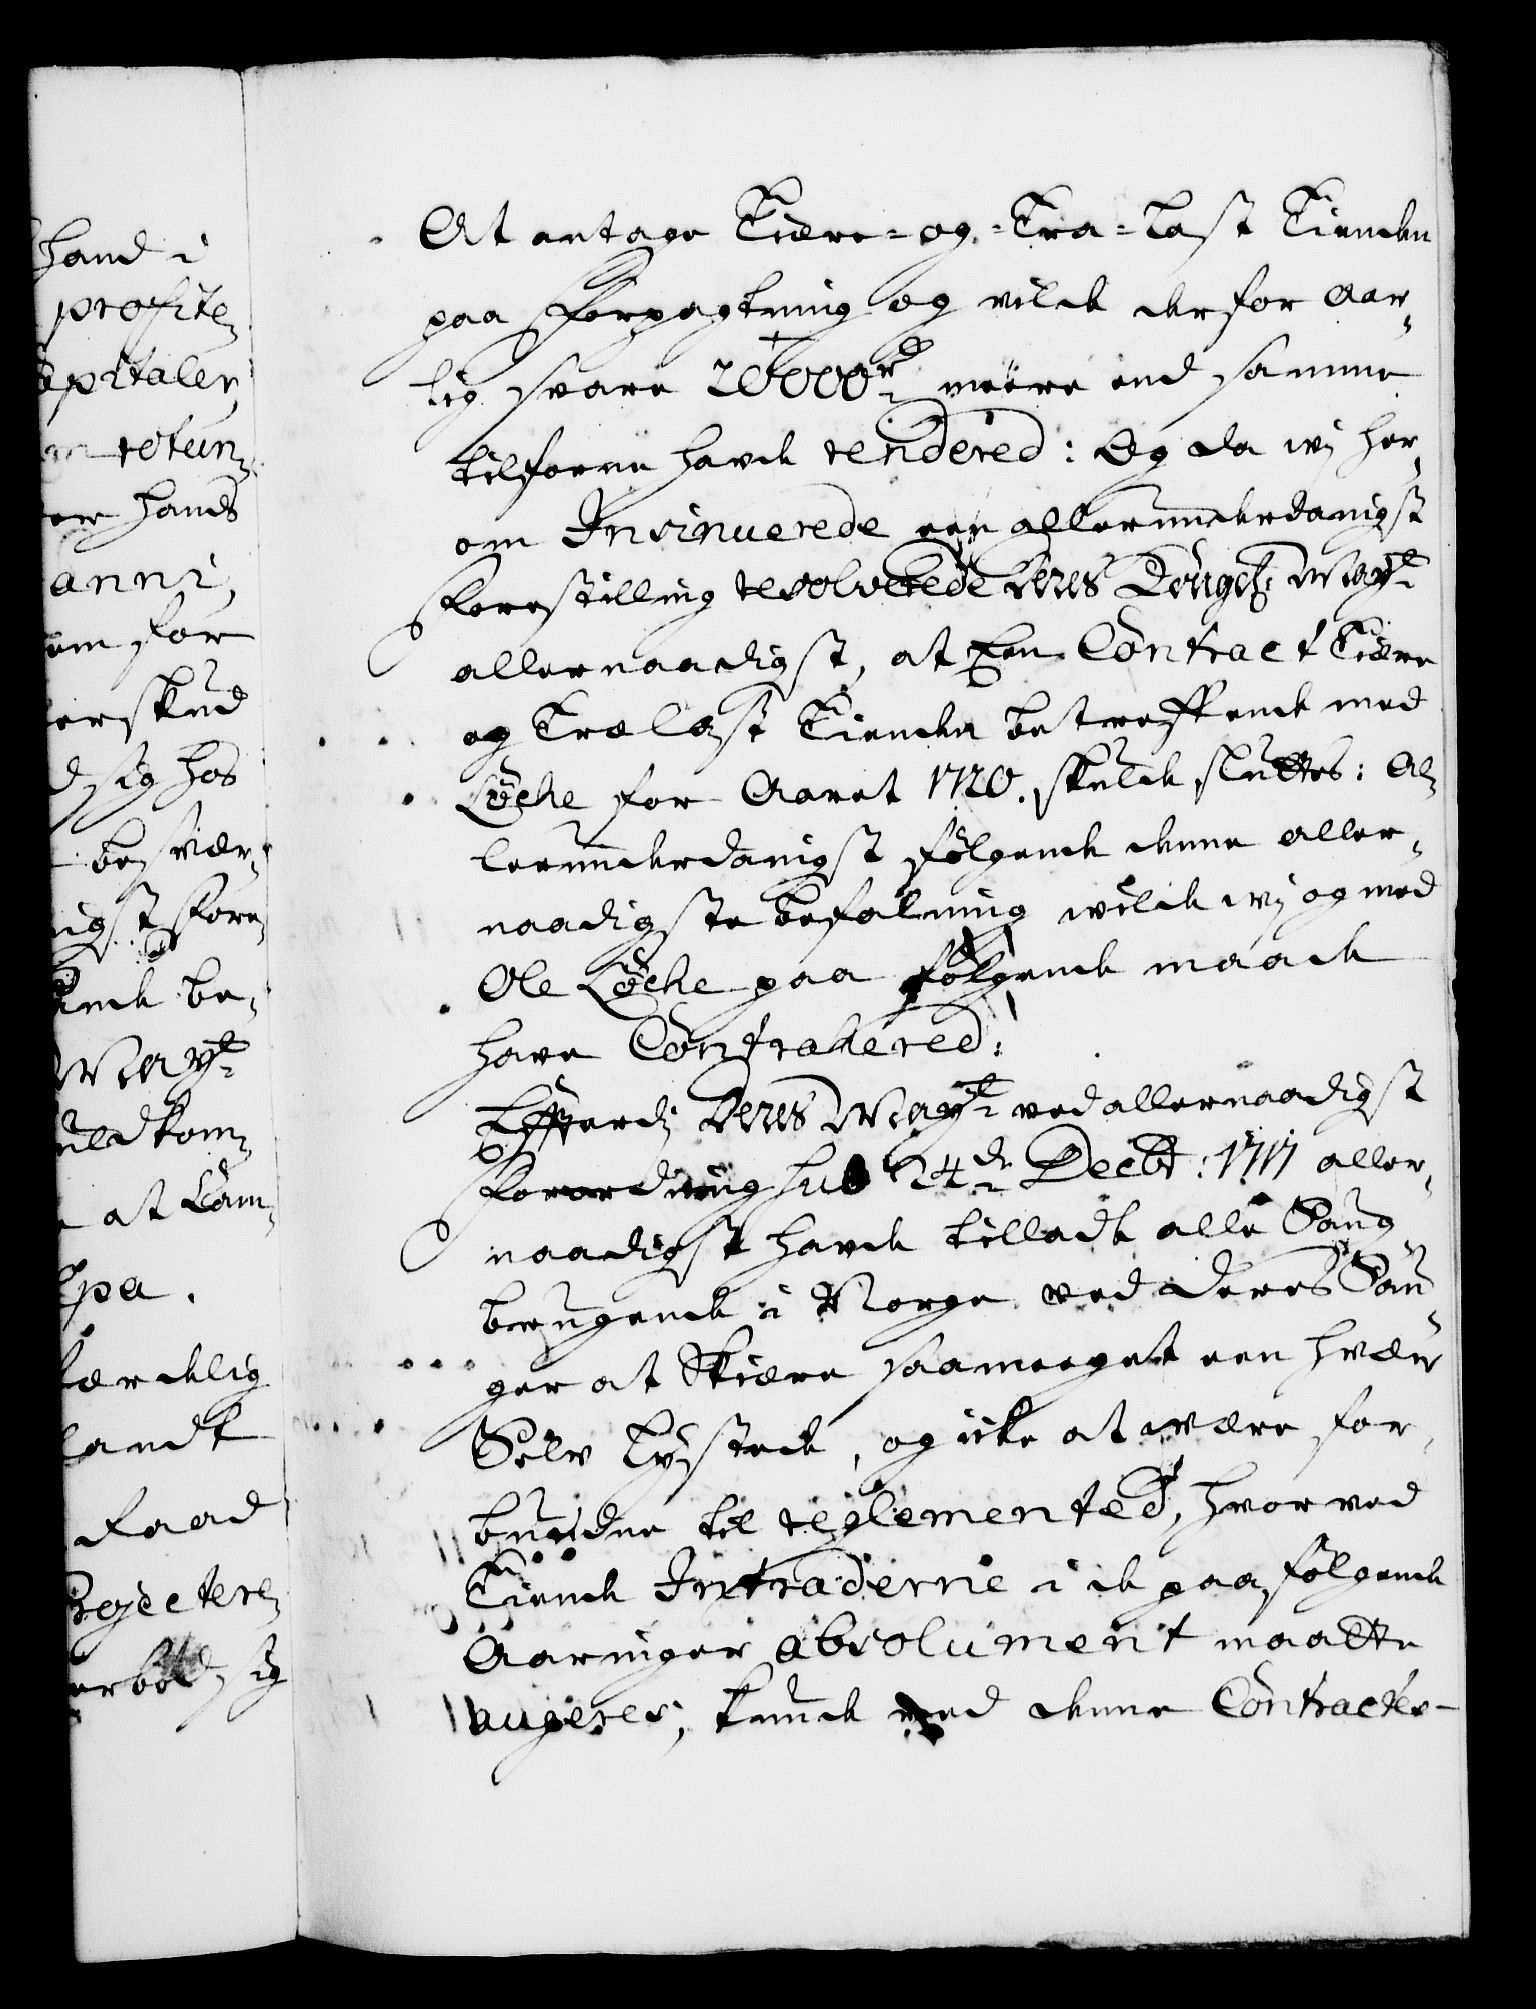 hand i
profite
pitaler
retun
er hands
anni,
em for
erskud
d sig hos
besvær
igst fore
ende be
May.
uldkom
at Cam
pa.
færdelig
landt
raad
Rejectere
erbød sig
At antage Tiære- og Træ-Last Tienden
paa Forpagtning og vilde derfor Aar
lig svare 20000 rd meere end samme
tilforne havde rendered: Og da wj her
om Insinuerede een allerunderdanigst
Forestilling resolverede Deres Konge: May:
allernaadigst, at Een Contract Tiære
og Træ Last Tienden betreffende med
Løche for Aaret 1720. skulde sluttes: Al
lerunderdanigst følgende denne aller
naadigste befalning wilde wj og med
Ole Løche paa følgende maade
have Contrahered:
Efterdj Deres May: ved allernaadigst
Forordning sub 24de Decbr: 1717 aller
naadigst havde tilladt alle Saug
brugende i Norge ved deres Sau
ger at Skiære saameeget een hver
Selv Lystede, og icke at være for
bundne til reglemented, hvorved
Tiende Intraderne i de paafølgende
Aaringer absolument maatte
augeres, kunde med denne Contractes